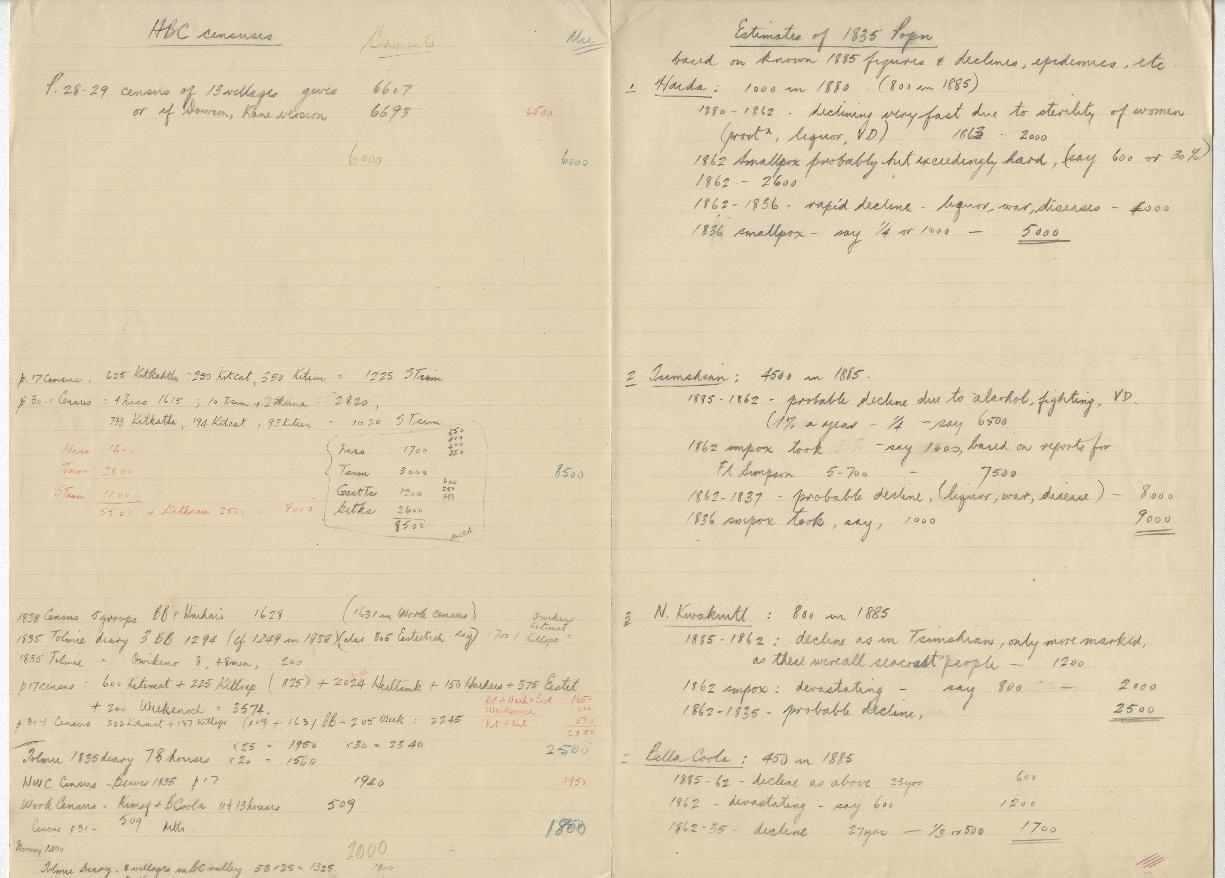 HBC censuses
Comments
Use
P. 28-29 census of 13 villages gives 6607
or if Dawson, Kane version 6693
6500
6000
6000
p. 17 census : 625 Kitkahtla 250 Kitcat, 350 Kitien = 1225 S Tsim
p 30-1 Census : 4 Nass 1615 ; 10 Tsim + 2 = 2820,
733 Kitkatla, 194 Kitcat, 93 Kitien - 1020 S Tsim
Nass 1600
Tsim 2800
STsim 1100
5500 + Kitksian 2500 8000
Nass 1700
Tsim 3000
CoastTs 1200
Gitks 2600
8500
8500
1838 Census 5 groups BB + Haihais 1628 (1631 in Work census)
1835 Tolmie diary 3 BB 1294 (cf 1249 in 1838) (also 305 say) 1700
Owikeno
Kitimat
Kitlope =
1835 Tolmie " Owikeno 8, +8men, 200
p 17 census : 600 Kitimat + 225 Kitlope (825) + 2024 Heiltsuk + 150 + 375
+ 200 Weekenoch = 3574.
p 30-1 Census 222 Kitimat + 187 Kitlope (409) + 1631 BB + 205 Week : 2245
BB + Haih + East - 1650
Weekenno 200
Kit + Kit 500
2350
Tolmie 1835 diary 78 houses x25 = 1950 x30 = 2340
x20 = 1560
2500
NWC Census - 1835 p 17 1940
1950
Work Census - + B Coola 11+13 houses 509
Census p 31 - 509 ditto
1800
Mooney 1400
2000
Tolmie Diary - 8 villages in BC valley 53 x 25 = 1325 1300
Estimates of 1835 Popn
based on known 1885 figures & declines, epidemics, etc
1 Haida : 1000 in 1880 . (800 in 1885)
1880-1862 - declining very fast due to sterility of women
(prostn, liquor, VD) 1863 - 2000
1862 Smallpox probably hit exceedingly hard, (say 600 or 30%)
1862 - 2600
1862-1836 - rapid decline - liquor, war, diseases - 4000
1836 smallpox - say 1/4 or 1000 - 5000
2 Tsimshian : 4500 in 1885.
1885-1862 - probable decline due to alcohol, fighting, VD.
(1% a year - 1/4 - say 6500
1862 smpox took - say 1000, based on reports for
Ft Simpson 5-700 - 7500
1862-1837 - probable decline, (liquor, war, disease) - 8000
1836 smpox took, say, 1000 9000
3 N. Kwakiutl : 800 in 1885
1885-1862 : decline as in Tsimshian, only more marked,
as these were all seacoast people - 1200
1862 smpox : devastating - say 800 - 2000
1862-1835 - probable decline, 2500
Bella Coola : 450 in 1885
1885-62 - decline as above 23yrs 600
1862 - devastating - say 600 1200
1862-35 - decline 27yrs - 1/3 or 500 1700